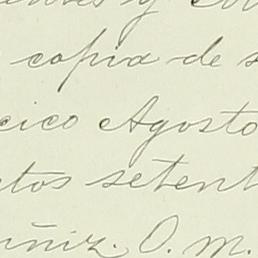 y
copia de
cico Agosto
tos setent
uñiz. O. M.